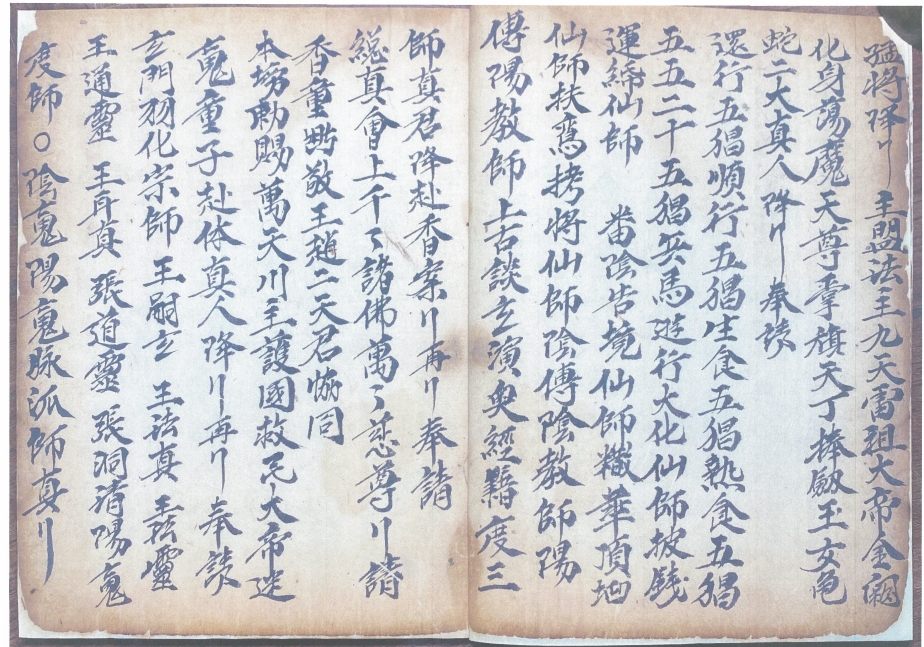 猛将降〢 主盟法主九天雷祖大帝金闕
化身蕩魔天尊掌旗天丁捧劍玉女龜
蛇二大真人 降〢 奉請
還行五猖順行五猖生食五猖熟食五猖
五五二十五猖兵馬遊行大化仙師披
運仙師 番陰告仙師 華頂
仙師扶鸞拷將仙師陰傳陰教師陽
傳陽教師上古談玄演奥經籍度三
師真君降赴香案〢再〢奉請
総真會上千〻諸佛萬〻慈尊〢請
香童 敬王趙二天君 同
本坊勅賜萬天川主護國救民大帝送
䰟童子赴体真人降〢再〢奉請
玄門羽化宗師 王嗣玄 王法真 王法靈
王通靈 王真 張道靈 張洞清陽䰟
度師〇陰䰟陽䰟脉派師真〢